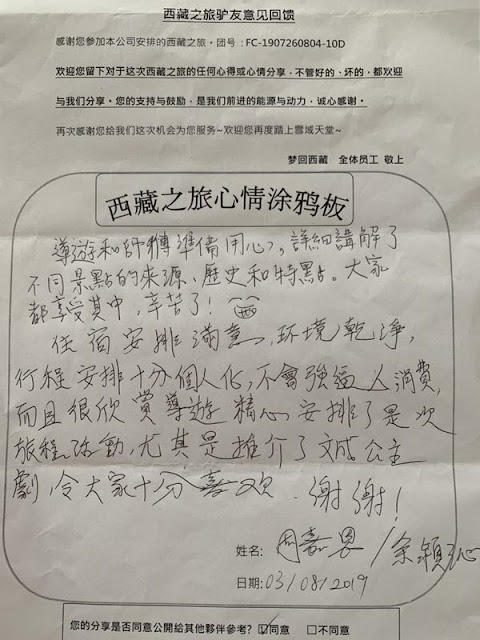 西藏之旅驴友意见回馈
感谢您参加本公司安排的西藏之旅，团号 : FC-1907260804-10D
欢迎您留下对于这次西藏之旅的任何心得或心情分享，不管好的、坏的，都欢迎
与我们分享。您的支持与鼓励，是我们前进的能源与动力，诚心感谢。
再次感谢您给我们这次机会为您服务~欢迎您再度踏上雪域天堂~
梦回西藏 全体员工 敬上
西藏之旅心情涂鸦板
導遊和師傅準備用心，詳細講解了
不同景點的來源、歷史和特點。大家
都享受其中，辛苦了！
住宿安排滿意，环境乾净，
行程安排十分個人化，不會強逼人消費，
而且很欣賞導遊精心安排了是次
旅程活動，尤其是推介了文成公主
劇，令大家十分喜欢．謝謝！
姓名: 周嘉恩/余穎沁
日期: 03/08/2019
您的分享是否同意公開給其他夥伴參考? ☑同意 □不同意